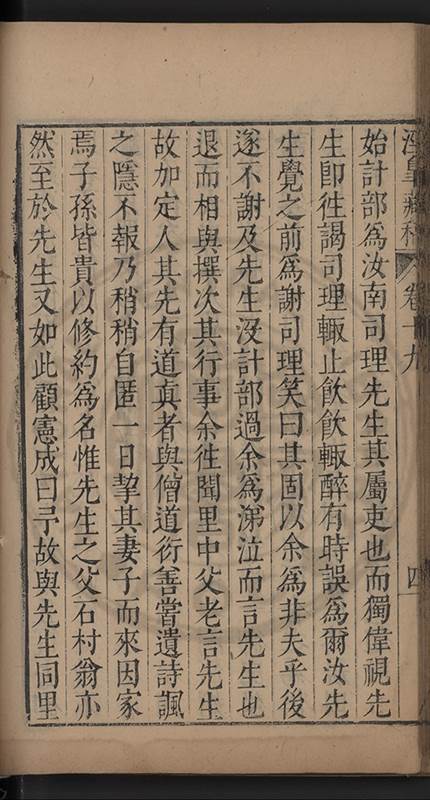 涇皐藏稿 卷十九 四
始計部爲汝南司理先生其屬吏也而獨偉視先
生卽徃謁司理輙止飲飲輙醉有時誤爲爾汝先
生覺之前爲謝司理笑曰其固以余爲非夫乎後
遂不謝及先生沒計部過余爲涕泣而言先生也
退而相與撰次其行事余徃聞里中父老言先生
故加定人其先有道真者與僧道衍善嘗遺詩諷
之隱不報乃稍稍自匿一日挈其妻子而來因家
焉子孫皆貴以修約爲名惟先生之父石村翁亦
然至於先生又如此顧憲成曰予故與先生同里